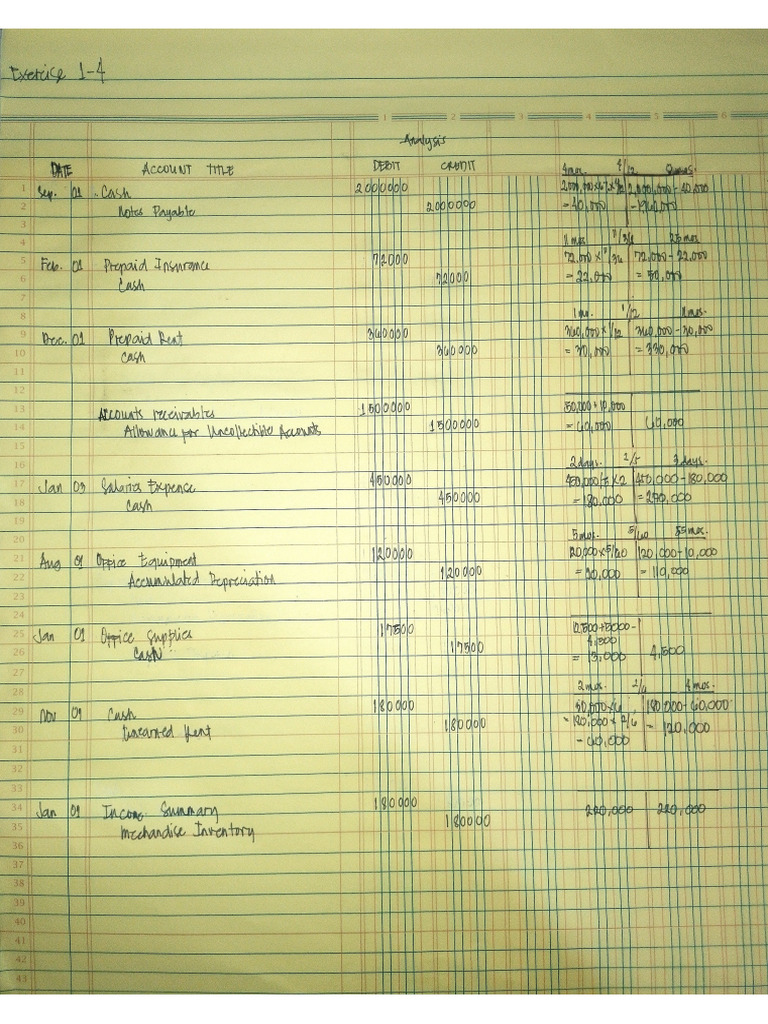 Exercise 1-4
1 2 3 4 5 6
Analysis
DATE ACCOUNT TITLE DEBIT CREDIT 4mos. 4/12
1 Sep. 01 Cash 2000000 2,000,000 - 40,000
2 Notes Payable 2000000 = 40,000
3
4 25 mos.
5 Feb. 01 Prepaid Insurance 72000 72,000 - 22,000
6 Cash 72000 = 22,000 = 50,000
7
8 1 mo. 1/12
9 Dec. 01 Prepaid Rent 360000 360,000 x 1/12 360,000 - 30,000
10 Cash 360000 = 30,000 = 330,000
11
12
13 Accounts receivables 1500000 50,000 + 10,000
14 Allowance for Uncollectible Accounts 1500000 = 60,000 60,000
15
16 2 days. 2/5 3 days.
17 Jan 03 Salaries Expense 450000 450,000/5 x 2 450,000 - 180,000
18 Cash 450000 = 180,000 = 270,000
19
20 5 mos. 5/60 55 mos.
21 Aug 01 Office Equipment 120000 120,000 x 5/60 120,000 - 10,000
22 Accumulated Depreciation 120000 = 110,000
23
24
25 Jan 01 Office Supplies 17500 12,500 + 5000 - 4,500
26 Cash 17500 = 13,000 4,500
27
28 2 mos. 2/6 4 mos.
29 Nov 01 Cash 180000 180,000 - 60,000
30 Unearned Rent 180000 = 180,000 x 2/6 = 120,000
31 = 60,000
32
33
34 Jan 01 Income Summary 180000 220,000 220,000
35 Mechandise Inventory 180000
36
37
38
39
40
41
42
43